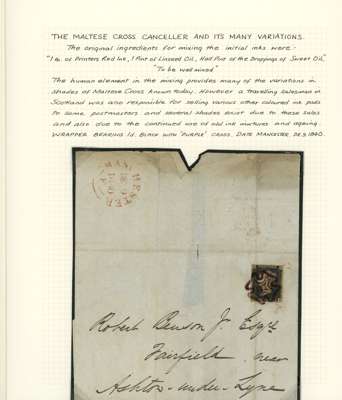 THE MALTESE CROSS CANCELLER AND ITS MANY VARIATIONS.
The original ingredients for mixing the initial inks were:-
"1 lb. of Printers Red Ink, 1 Pint of Linseed Oil, Half Pint of the Droppings of Sweet Oil,"
"To be well mixed"
The human element in the mixing provides many of the variations in
shades of Maltese Cross known today. However a travelling salesman in
Scotland was also responsible for selling various other coloured ink pads
to some postmasters and several shades exist due to these sales
and also due to the continued use of old ink mixtures and ageing.
WRAPPER BEARING 1d. BLACK WITH "PURPLE" CROSS. DATE MANCHESTER, DE.9.1840.
Robert Benson Jr Esqre
Fairfield near
Ashton-under-Lyne